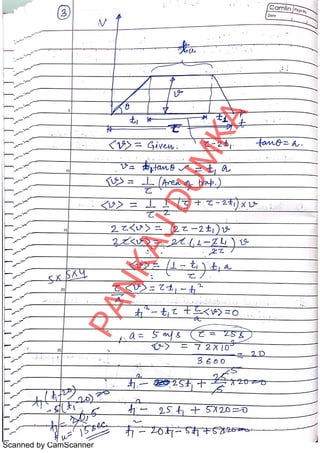 ③
Camlin Page No.
Date
V
tu
v
θ
t₁ t₁ t
τ
<v> = Given. τ-2t₁ tanθ = a.
v = t₁ tanθ = t₁ a
<v> = 1/τ (Area of trap.)
<v> = 1/τ 1/2 (τ + τ - 2t₁) × v
2τ<v> = (2τ - 2t₁) v
2τ<v> = 2τ (1 - 2t₁/2τ) v
<v> = (1 - t₁/τ) t₁ a
5×5×4
τ/a <v> = τt₁ - t₁²
t₁² - t₁τ + τ/a <v> = 0
a = 5 m/s τ = 25 s
<v> = 72×10³/3600 = 20
t₁² - 25t₁ + 25/5 × 20 = 0
t₁(t₁-20)
-5(t₁-20) = 0
t₁² - 25t₁ + 5×20 = 0
t₁ = 5
tu = 15 sec.
t₁² - 20t₁ - 5t₁ + 5×20 = 0
PANKAJ DUMKA
Scanned by CamScanner